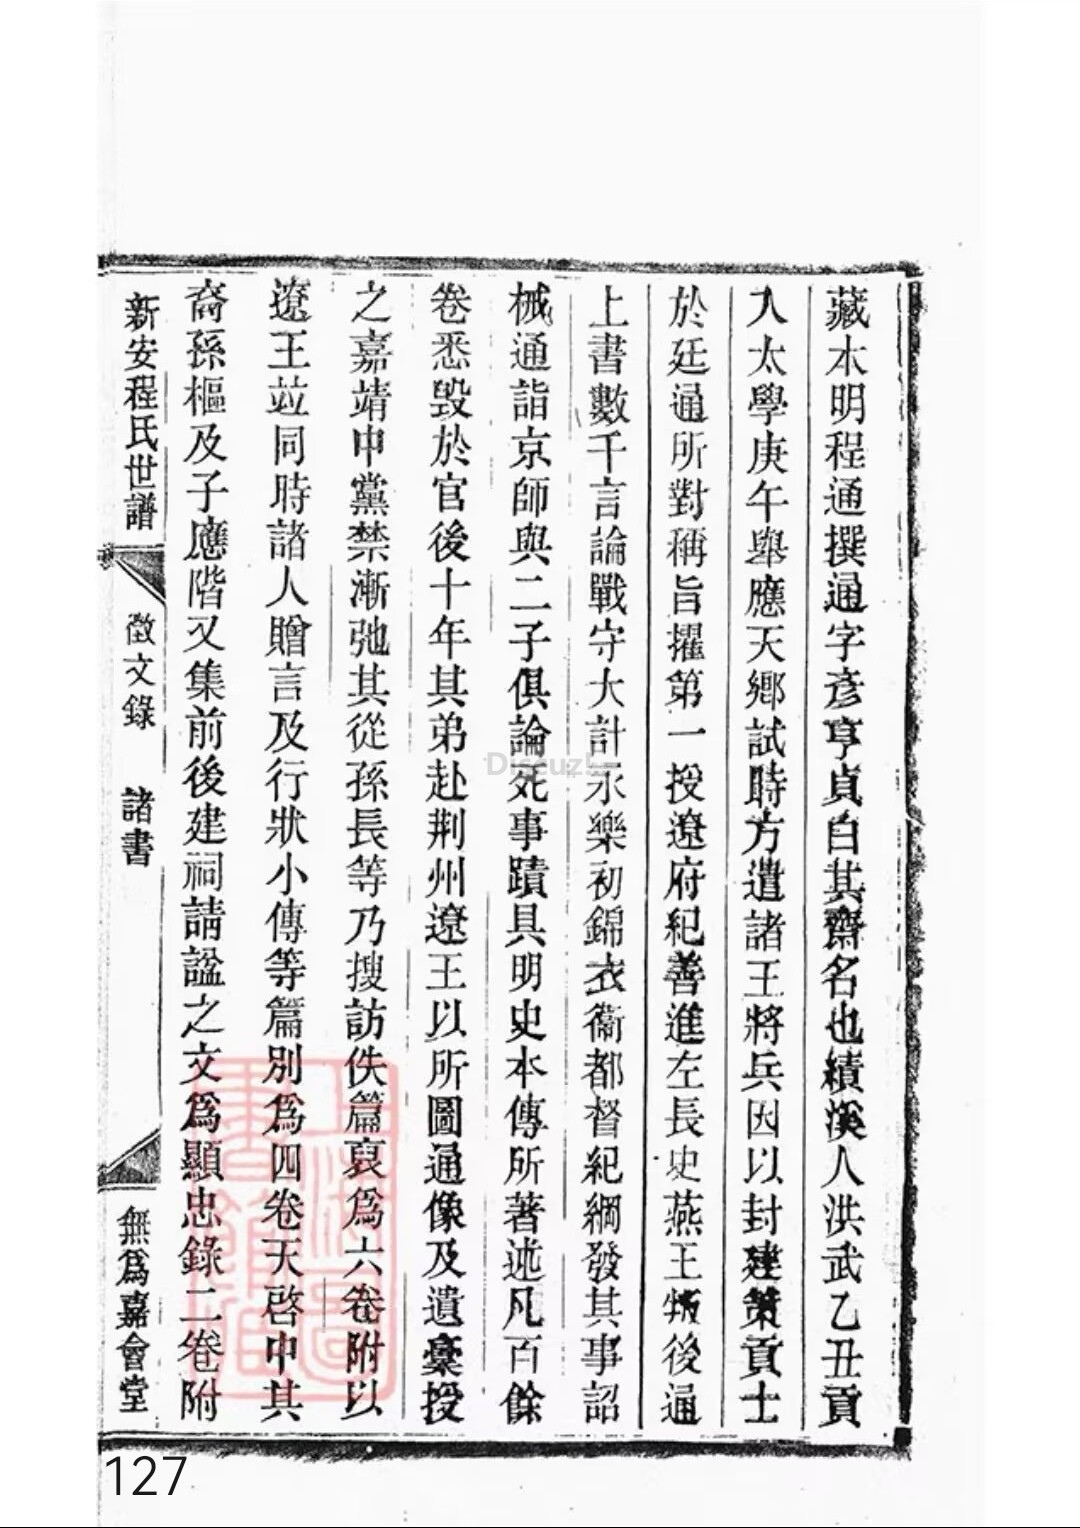 藏本明程通撰通字彥亨貞白其齋名也績溪人洪武乙丑貢
入太學庚午舉應天鄉試時方遣諸王將兵因以封建策貢士
於廷通所對稱旨擢第一授遼府紀善進左長史燕王叛後通
上書數千言論戰守大計永樂初錦衣衞都督紀綱發其事詔
械通詣京師與二子俱論死事蹟具明史本傳所著述凡百餘
卷悉毀於官後十年其弟赴荆州遼王以所圖通像及遺稾授
之嘉靖中黨禁漸弛其從孫長等乃搜訪佚篇裒爲六卷附以
遼王竝同時諸人贈言及行狀小傳等篇別爲四卷天啓中其
裔孫樞及子應階又集前後建祠請諡之文爲顯忠錄二卷附
新安程氏世譜 徵文錄 諸書 無爲嘉會堂
上海圖書館藏
Discuz!
127